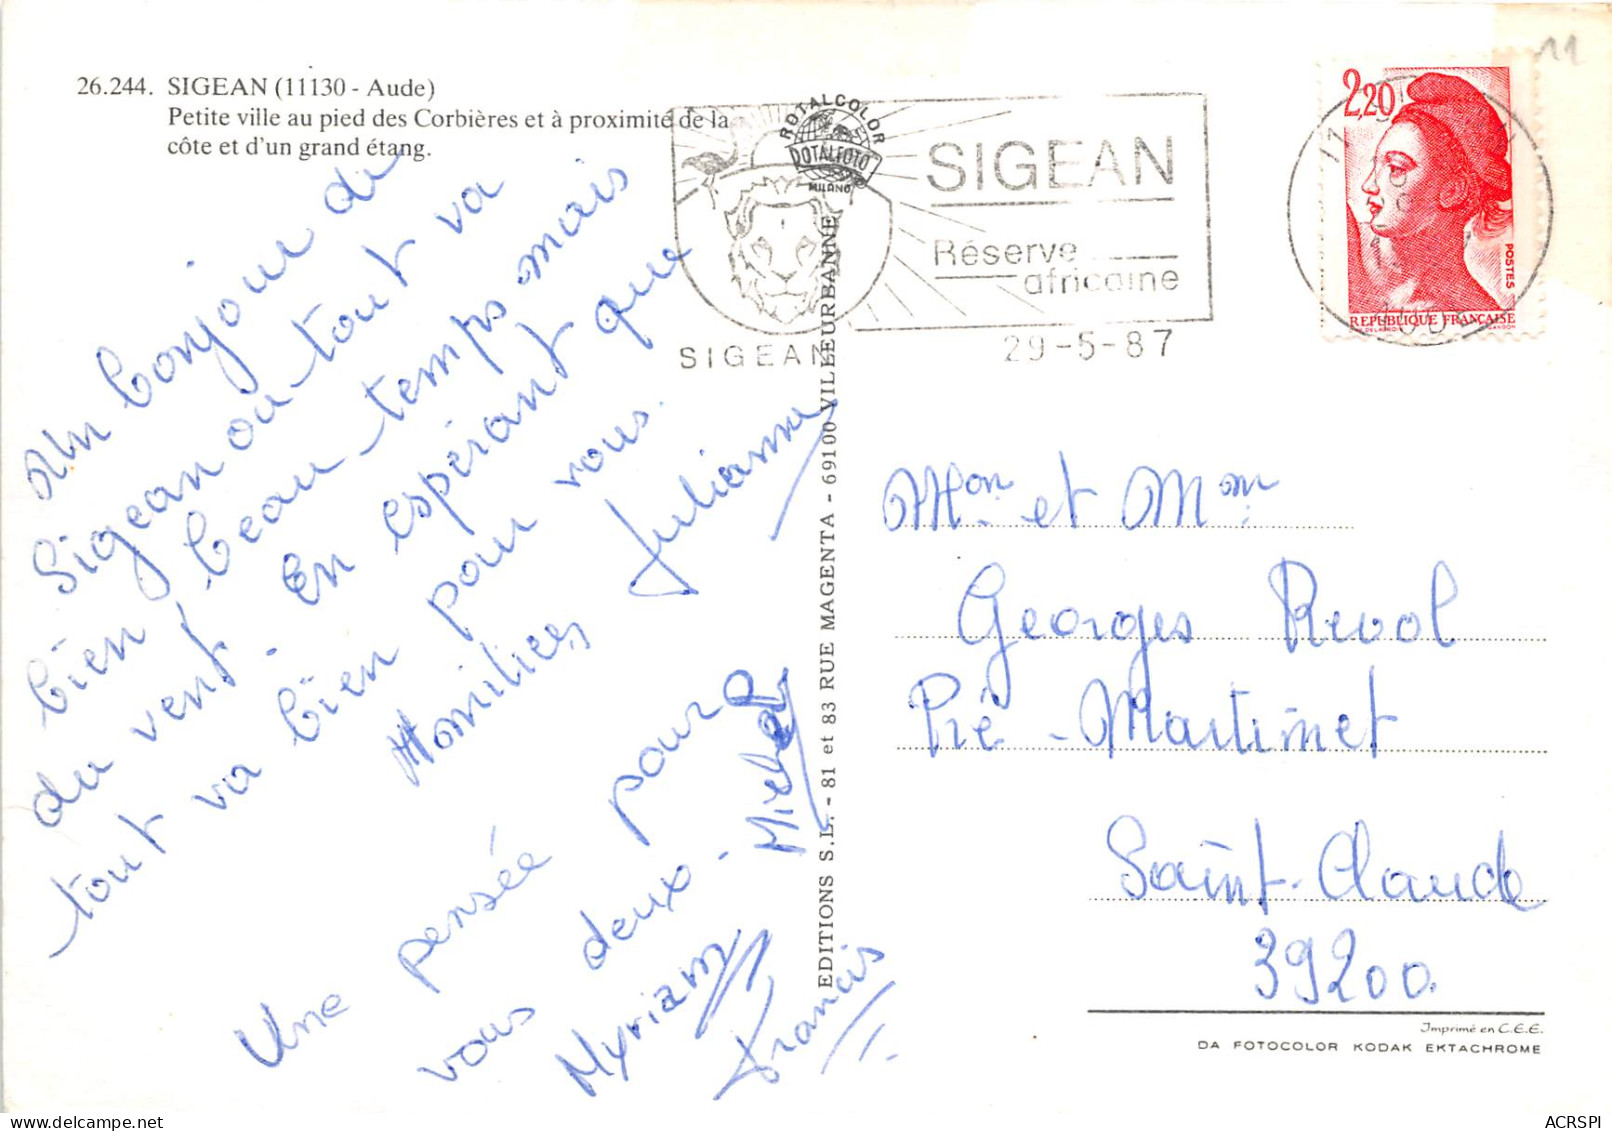 26.244. SIGEAN (11130 - Aude)
Petite ville au pied des Corbières et à proximité de la
côte et d'un grand étang.
Un bonjour de
Sigean ou tout va
bien, beau temps mais
du vent. En espérant que
tout va bien pour vous.
Amitiés Julianne
Une pensée pour
vous deux - Michel
Myriam
Francis
EDITIONS S.L. - 81 et 83 RUE MAGENTA - 69100 VILLEURBANNE
ROTALCOLOR
ROTALFOTO
MILANO
SIGEAN
Réserve
africaine
SIGEAN
29-5-87
11
AUDE
2,20
POSTES
REPUBLIQUE FRANÇAISE
11
Mon et Mm
Georges Revol
Pré - Martinet
Saint-Claude
39200.
Imprimé en C.E.E.
DA FOTOCOLOR KODAK EKTACHROME
ACRSPI